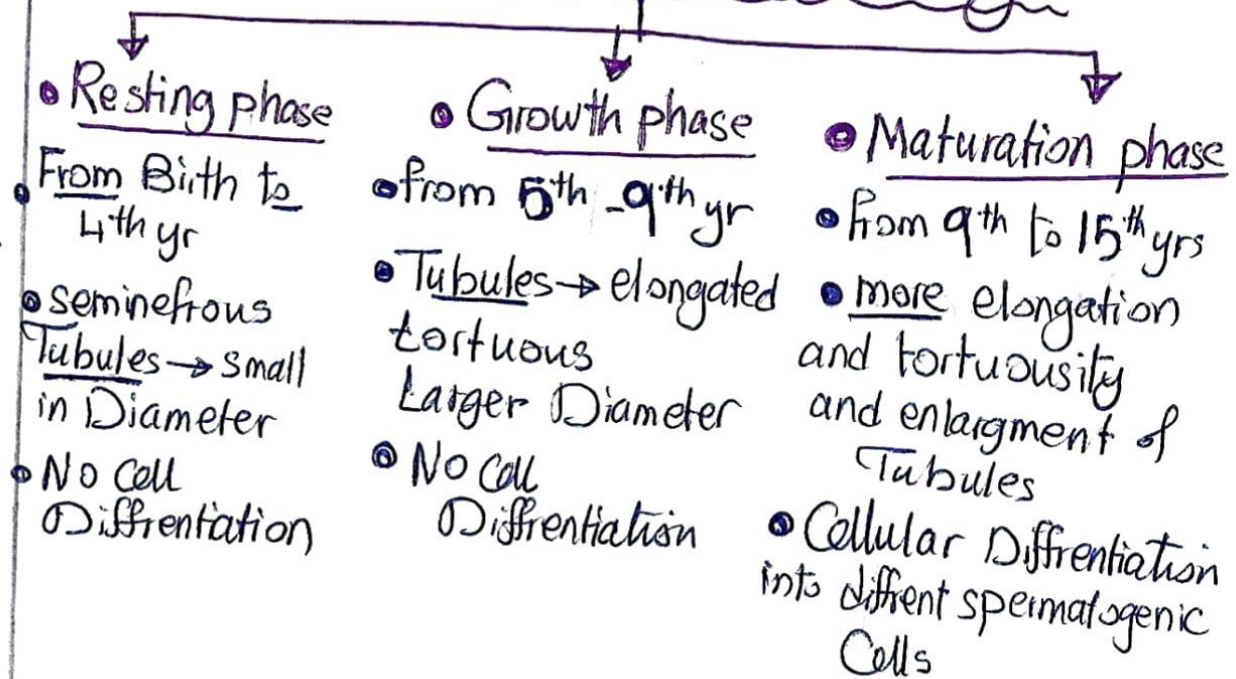 • Resting phase
• From Birth to
4th yr
• seminefrous
Tubules → small
in Diameter
• No Cell
Diffrentiation
• Growth phase
• from 5th - 9th yr
• Tubules → elongated
tortuous
Larger Diameter
• No Cell
Diffrentiation
• Maturation phase
• from 9th to 15th yrs
• more elongation
and tortuousity
and enlargment of
Tubules
• Cellular Diffrentiation
into diffrent spermatogenic
Cells